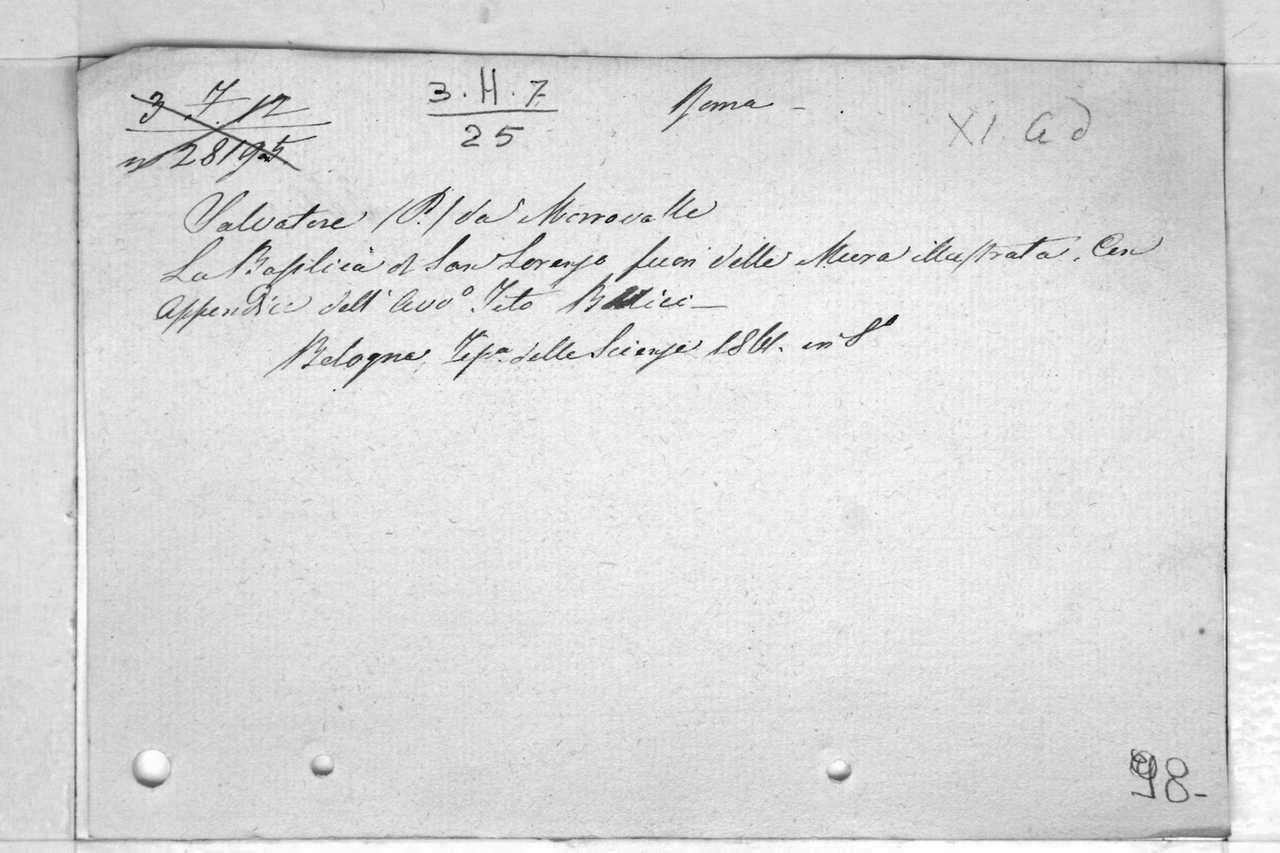 3 7. 12
n 28195
3. H. 7.
25
Roma -
XI. G d
Salvatore (P.) da Morrovalle
La Basilica di San Lorenzo fuori delle Mura illustrata. Con
appendici dell' Avvo. Tito
Bologna, Tipa. delle Scienze 1861. in 8o
98-